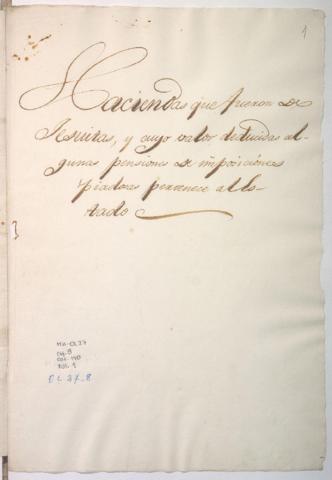 1
Haciendas que fueron de
Jesuitas, y cuyo valor deducidas al-
gunas pensiones de imposiciones
Piadosas pertenece al Es-
tado
MH-OL27
Caj. 8
Doc. 140
Fol. 1
OL 27_8